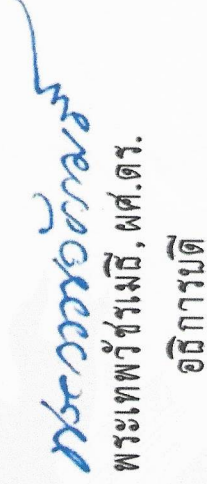 พระเทพวัชรเมธี, ผศ.ดร.
อธิการบดี